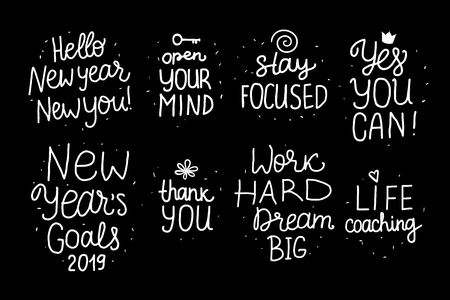 Hello
New year
New you!
open
YOUR
MIND
stay
FOCUSED
Yes
YOU
CAN!
New
Year's
Goals
2019
thank
YOU
Work
HARD
Dream
BIG
LIFE
coaching